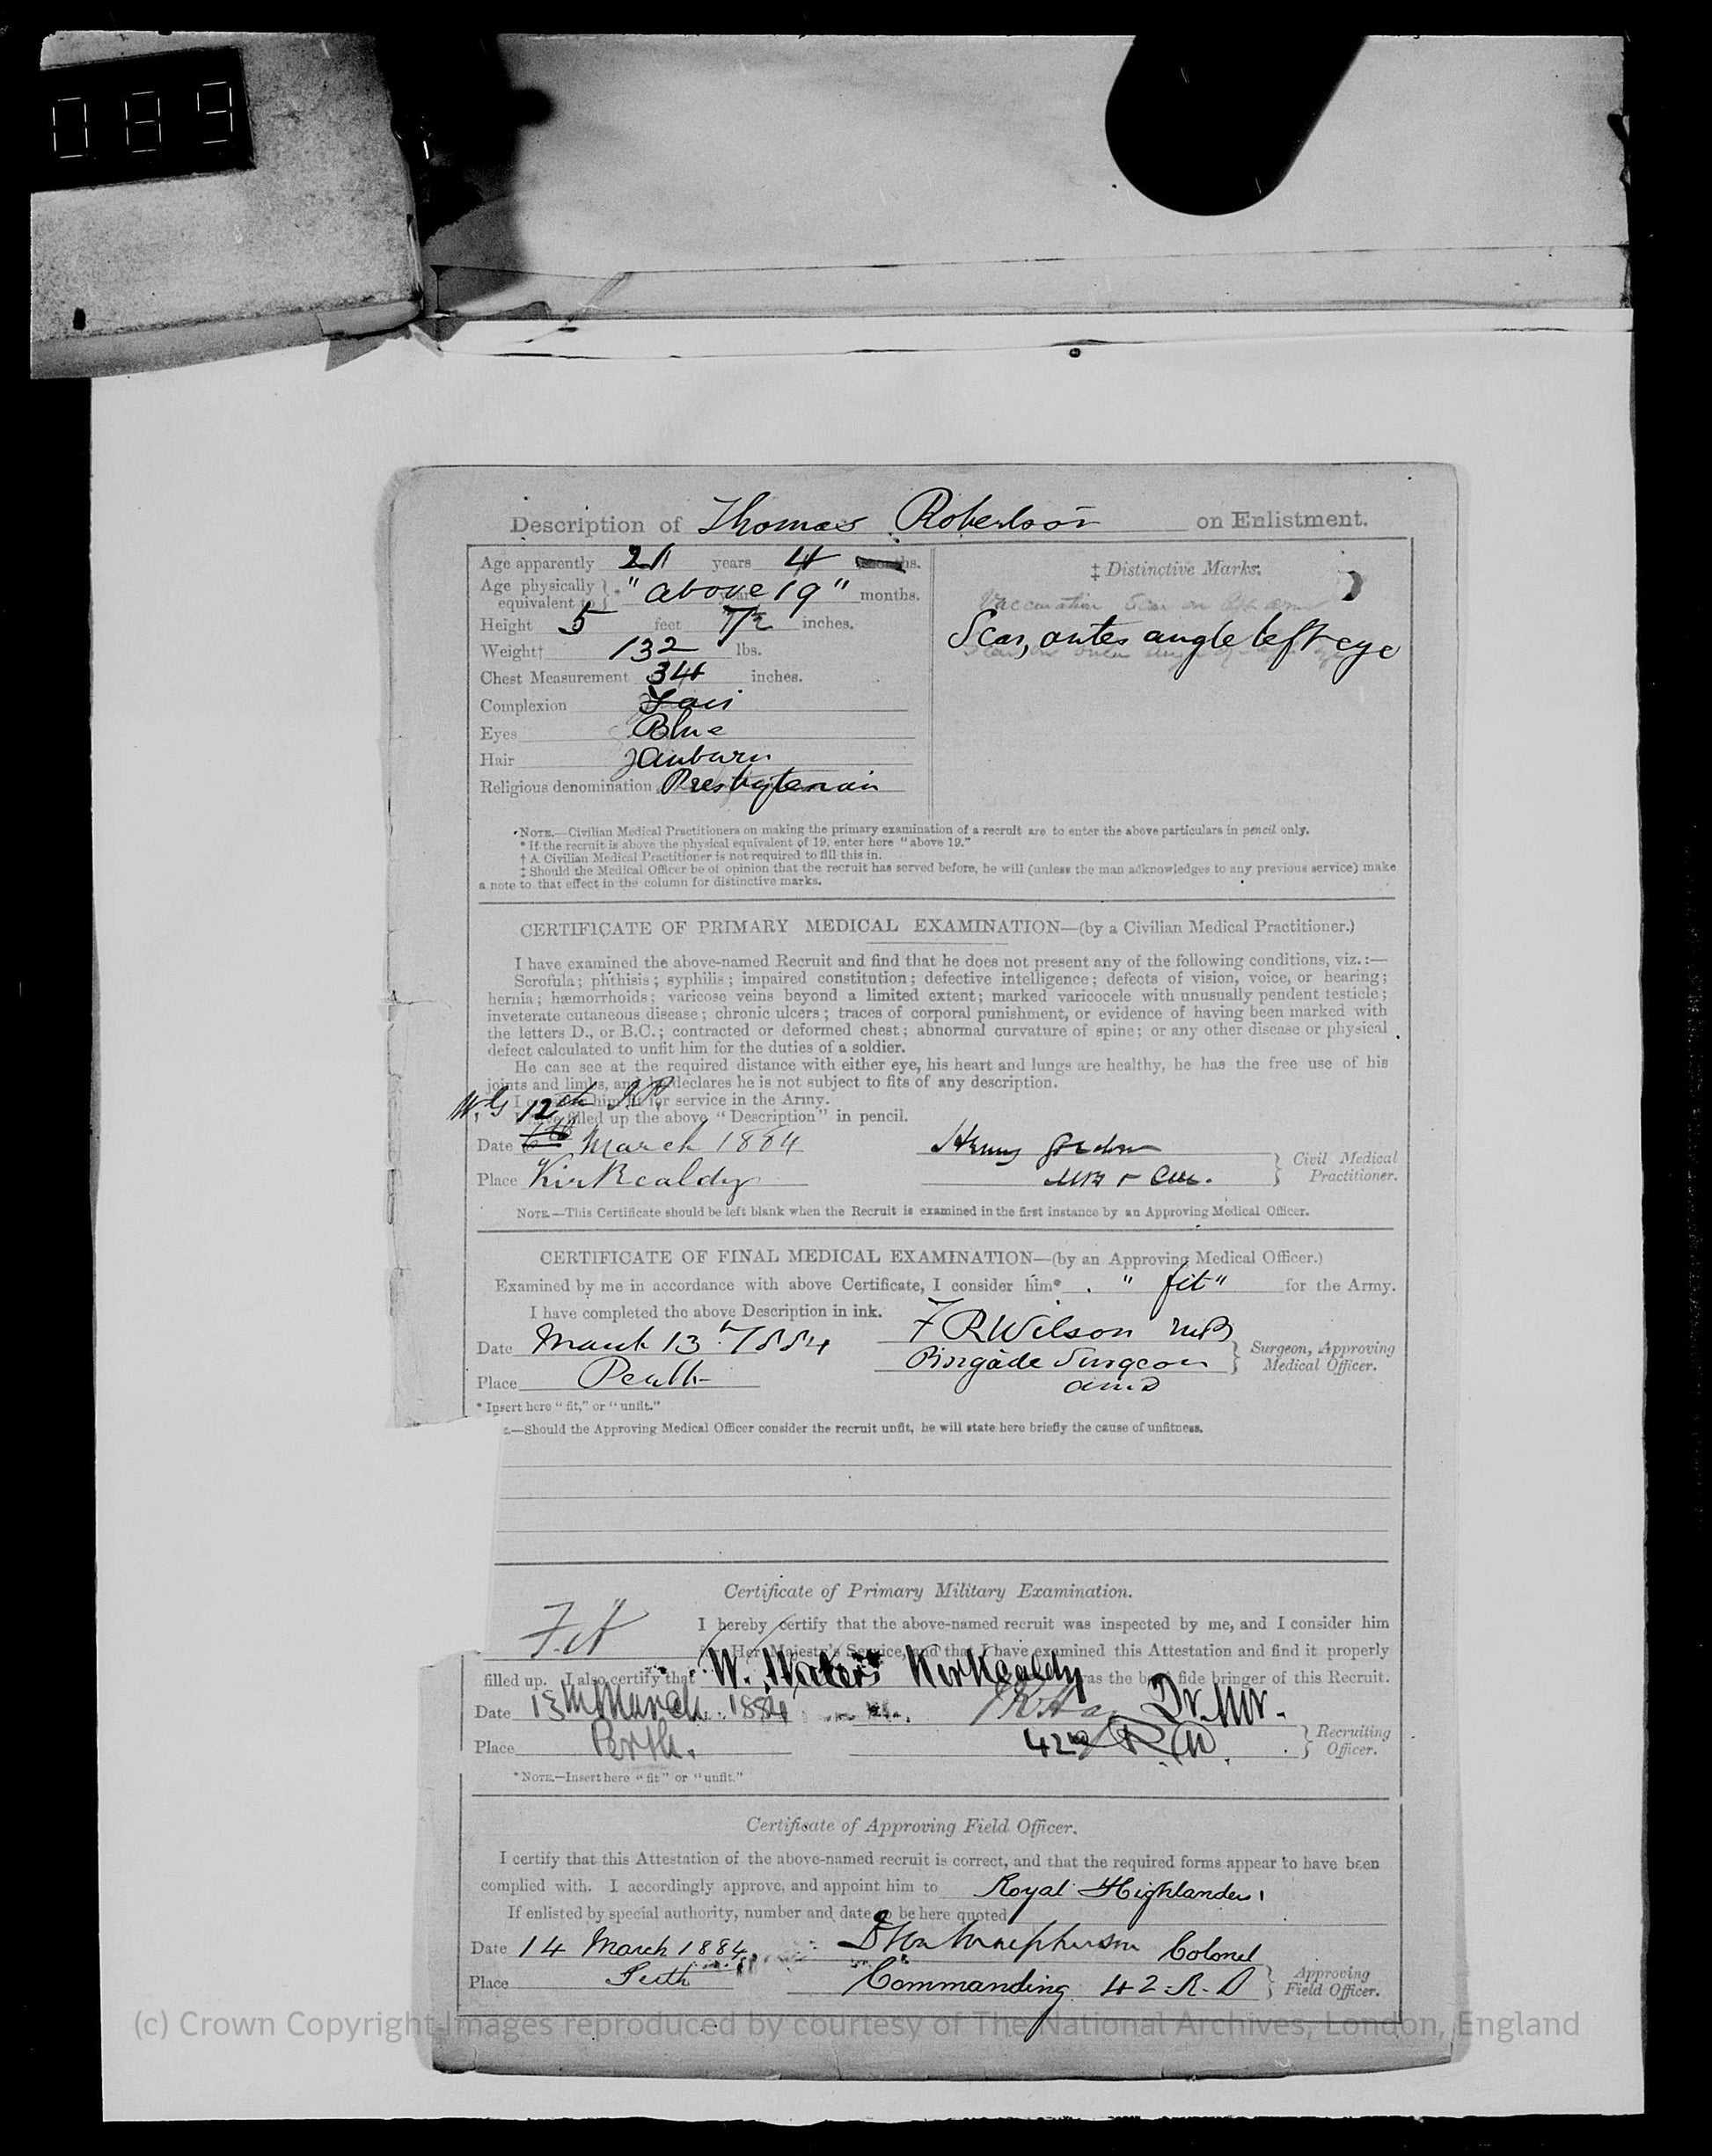 089
Description of Thomas Robertson on Enlistment.
Age apparently 21 years 4 months.
Age physically equivalent to } * " above 19 " years months.
Height 5 feet 7½ inches.
Weight† 132 lbs.
Chest Measurement 34 inches.
Complexion Fair
Eyes Blue
Hair auburn
Religious denomination Presbyterian
‡ Distinctive Marks.
Vaccination Scar on left arm
Scar, outer angle left eye
NOTE.—Civilian Medical Practitioners on making the primary examination of a recruit are to enter the above particulars in pencil only.
* If the recruit is above the physical equivalent of 19, enter here "above 19."
† A Civilian Medical Practitioner is not required to fill this in.
‡ Should the Medical Officer be of opinion that the recruit has served before, he will (unless the man acknowledges to any previous service) make
a note to that effect in the column for distinctive marks.
CERTIFICATE OF PRIMARY MEDICAL EXAMINATION—(by a Civilian Medical Practitioner.)
I have examined the above-named Recruit and find that he does not present any of the following conditions, viz.:—
Scrofula; phthisis; syphilis; impaired constitution; defective intelligence; defects of vision, voice, or hearing;
hernia; hæmorrhoids; varicose veins beyond a limited extent; marked varicocele with unusually pendent testicle;
inveterate cutaneous disease; chronic ulcers; traces of corporal punishment, or evidence of having been marked with
the letters D., or B.C.; contracted or deformed chest; abnormal curvature of spine; or any other disease or physical
defect calculated to unfit him for the duties of a soldier.
He can see at the required distance with either eye, his heart and lungs are healthy, he has the free use of his
joints and limbs, and he declares he is not subject to fits of any description.
I consider him fit for service in the Army.
I have filled up the above "Description" in pencil.
12th
Date March 1884 Henry Gordon
Place Kirkcaldy MB & CM. } Civil Medical Practitioner.
NOTE.—This Certificate should be left blank when the Recruit is examined in the first instance by an Approving Medical Officer.
CERTIFICATE OF FINAL MEDICAL EXAMINATION—(by an Approving Medical Officer.)
Examined by me in accordance with above Certificate, I consider him* " fit " for the Army.
I have completed the above Description in ink.
Date March 13th 1884 F R Wilson MB
Brigade Surgeon } Surgeon, Approving Medical Officer.
Place Perth AMD
* Insert here "fit," or "unfit."
—Should the Approving Medical Officer consider the recruit unfit, he will state here briefly the cause of unfitness.
Certificate of Primary Military Examination.
I hereby certify that the above-named recruit was inspected by me, and I consider him
Fit for Her Majesty's Service, and that I have examined this Attestation and find it properly
filled up. I also certify that W. Waters Kirkcaldy was the bonâ fide bringer of this Recruit.
Date 13th March 1884
Place Perth. 42nd R.D. } Recruiting Officer.
*NOTE.—Insert here "fit" or "unfit."
Certificate of Approving Field Officer.
I certify that this Attestation of the above-named recruit is correct, and that the required forms appear to have been
complied with. I accordingly approve, and appoint him to Royal Highlanders
If enlisted by special authority, number and date to be here quoted
Date 14 March 1884. Macpherson Colonel
Place Perth Commanding 42 R.D } Approving Field Officer.
(c) Crown Copyright Images reproduced by courtesy of The National Archives, London, England